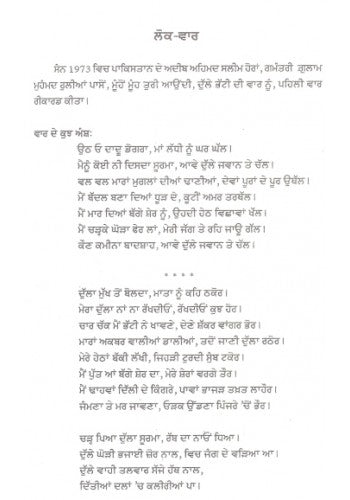 ਲੋਕ-ਵਾਰ
ਸੰਨ 1973 ਵਿਚ ਪਾਕਿਸਤਾਨ ਦੇ ਅਦੀਬ ਅਹਿਮਦ ਸਲੀਮ ਹੋਰਾਂ, ਗਮੰਤਰੀ ਗ਼ੁਲਾਮ
ਮੁਹੰਮਦ ਰੁਲੀਆਂ ਪਾਸੋਂ, ਮੂੰਹੋਂ ਮੂੰਹ ਤੁਰੀ ਆਉਂਦੀ, ਦੁੱਲੇ ਭੱਟੀ ਦੀ ਵਾਰ ਨੂੰ, ਪਹਿਲੀ ਵਾਰ
ਰੀਕਾਰਡ ਕੀਤਾ।
ਵਾਰ ਦੇ ਕੁਝ ਅੰਸ਼:
ਉਠ ਓ ਦਾਦੂ ਡੋਗਰਾ, ਮਾਂ ਲੱਧੀ ਨੂੰ ਘਰ ਘੱਲ।
ਮੈਨੂੰ ਕੋਈ ਨੀ ਦਿਸਦਾ ਸੂਰਮਾ, ਆਵੇ ਦੁੱਲੇ ਜਵਾਨ ਤੇ ਚੱਲ।
ਵਲ ਵਲ ਮਾਰਾਂ ਮੁਗਲਾਂ ਦੀਆਂ ਢਾਣੀਆਂ, ਦੇਵਾਂ ਪੂਰਾਂ ਦੇ ਪੂਰ ਉਥੱਲ।
ਮੈਂ ਬੱਦਲ ਬਣਾ ਦਿਆਂ ਧੂੜ ਦੇ, ਕੂਟੀਂ ਅਮਰ ਤਰਥੱਲ।
ਮੈਂ ਮਾਰ ਦਿਆਂ ਬੱਗੇ ਸ਼ੇਰ ਨੂੰ, ਉਹਦੀ ਹੇਠ ਵਿਛਾਵਾਂ ਖੱਲ।
ਮੈਂ ਚੜ੍ਹਕੇ ਘੋੜਾ ਫੇਰ ਲਾਂ, ਮੇਰੀ ਜੱਗ ਤੇ ਰਹਿ ਜਾਊ ਗੱਲ।
ਕੌਣ ਕਮੀਨਾ ਬਾਦਸ਼ਾਹ, ਆਵੇ ਦੁੱਲੇ ਜਵਾਨ ਤੇ ਚੱਲ।
* * * *
ਦੁੱਲਾ ਮੁੱਖ ਤੋਂ ਬੋਲਦਾ, ਮਾਤਾ ਨੂੰ ਕਹਿ ਠਕੋਰ।
ਮੇਰਾ ਦੁੱਲਾ ਨਾਂ ਨਾ ਰੱਖਦੀਓਂ, ਰੱਖਦੀਓਂ ਕੁਝ ਹੋਰ।
ਚਾਰ ਚੱਕ ਮੈਂ ਭੱਟੀ ਨੇ ਖਾਵਣੇ, ਦੇਣੇ ਸ਼ੱਕਰ ਵਾਂਗਰ ਭੋਰ।
ਮਾਰਾਂ ਅਕਬਰ ਵਾਲੀਆਂ ਡਾਲੀਆਂ, ਤਦੋਂ ਜਾਣੀ ਦੁੱਲਾ ਰਠੌਰ।
ਮੇਰੇ ਹੇਠਾਂ ਬੱਕੀ ਲੱਖੀ, ਜਿਹੜੀ ਟੁਰਦੀ ਸੁੰਬ ਟਕੋਰ।
ਮੈਂ ਪੁੱਤ ਆਂ ਬੱਗੇ ਸ਼ੇਰ ਦਾ, ਮੇਰੇ ਸ਼ੇਰਾਂ ਵਰਗੇ ਤੌਰ।
ਮੈਂ ਢਾਹਵਾਂ ਦਿੱਲੀ ਦੇ ਕਿੰਗਰੇ, ਪਾਵਾਂ ਭਾਜੜ ਤਖ਼ਤ ਲਾਹੌਰ।
ਜੰਮਣਾ ਤੇ ਮਰ ਜਾਵਣਾ, ਓੜਕ ਉੱਡਣਾ ਪਿੰਜਰੇ 'ਚੋਂ ਭੌਰ।
ਚੜ੍ਹ ਪਿਆ ਦੁੱਲਾ ਸੂਰਮਾ, ਰੱਬ ਦਾ ਨਾਓਂ ਧਿਆ।
ਦੁੱਲੇ ਘੋੜੀ ਭਜਾਈ ਜ਼ੋਰ ਨਾਲ, ਵਿਚ ਜੰਗ ਦੇ ਵੜਿਆ ਆ।
ਦੁੱਲੇ ਵਾਹੀ ਤਲਵਾਰ ਸੱਜੇ ਹੱਥ ਨਾਲ,
ਦਿੱਤੀਆਂ ਦਲਾਂ 'ਚ ਕਲੀਰੀਆਂ ਪਾ।